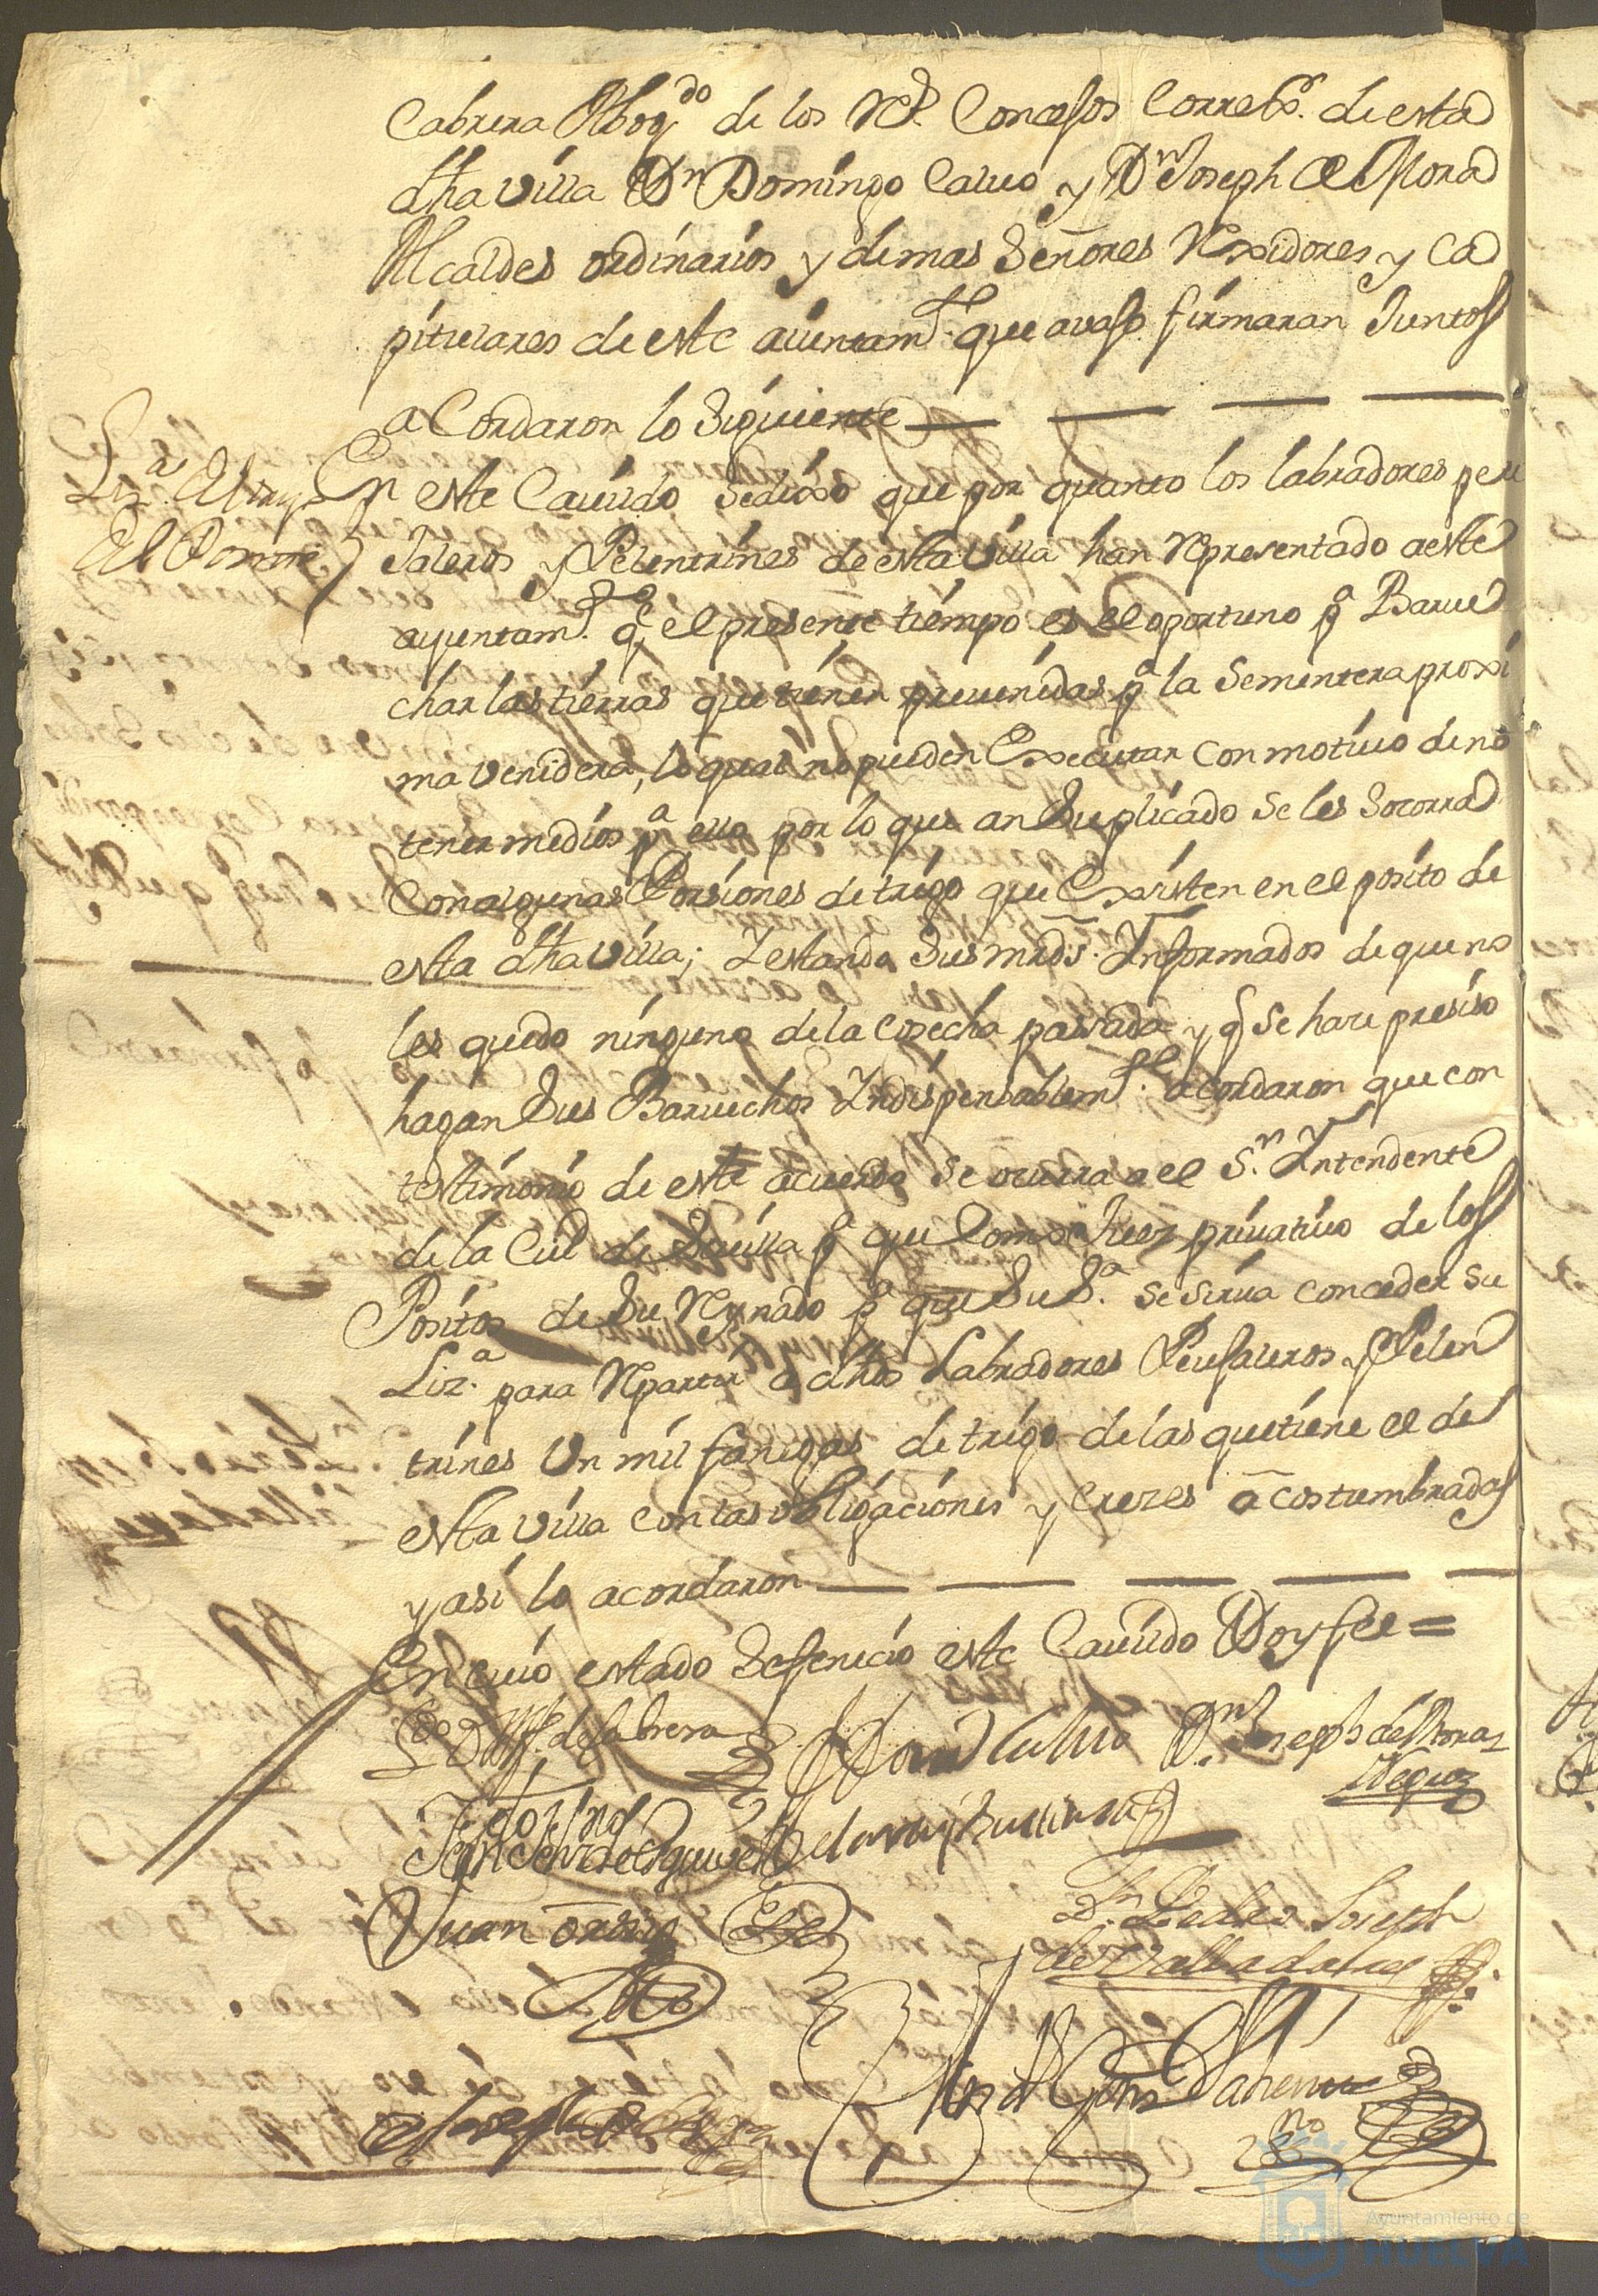 Cabrera Abog.do de los R.s Consejos Correx.or de esta
dha Villa Dn Domingo Calvo y Dn Joseph de Mora
Alcaldes ordinarios y demas Señores Rexidores y Ca
pitulares de este aiuntam.to que avajo firmaran Juntos
a Cordaron lo Siguiente
Liz.a El trigo
El Comun
En este Cavildo Se dixo que por quanto los labradores peu
Jaleros y Pelentrines de esta Villa han Representado a este
ayuntam.to q.e el presente tiempo es el oportuno p.a Barve
char las tierras que tienen prevenidas p.a la Sementera proxi
ma venidera, lo qual no pueden Executar con motivo de no
tener medios p.a ello por lo que an Suplicado Se les Socorra
Con algunas Porsiones de trigo que Existen en el posito de
esta dha Villa; Y estando Sus mrds. Informados de que no
les quedo ninguno de la Cosecha passada y q.e Se hase presiso
hagan Sus Barvechos Indispensablem.te acordaron que con
testimonio de este acuerdo Se ocurra a el S.r Intendente
de la Ciud de Sevilla p.a que Como Juez privativo de los
Positos de Su Reynado p.a que Su S.a Se Sirva conceder su
Liz.a para Repartir a dhos Labradores Peujaleros y Pelen
trines Un mil fanegas de trigo de las que tiene el de
esta Villa con las obligaciones y Crezes acostumbradas
y asi lo acordaron
En cuio estado Se fenicio este Cavildo Doy fee =
L.do D. de Cabrera
Dom.o Calvo
D.n Joseph de Mora
Juan
D.n Pedro Joseph
de Valladares